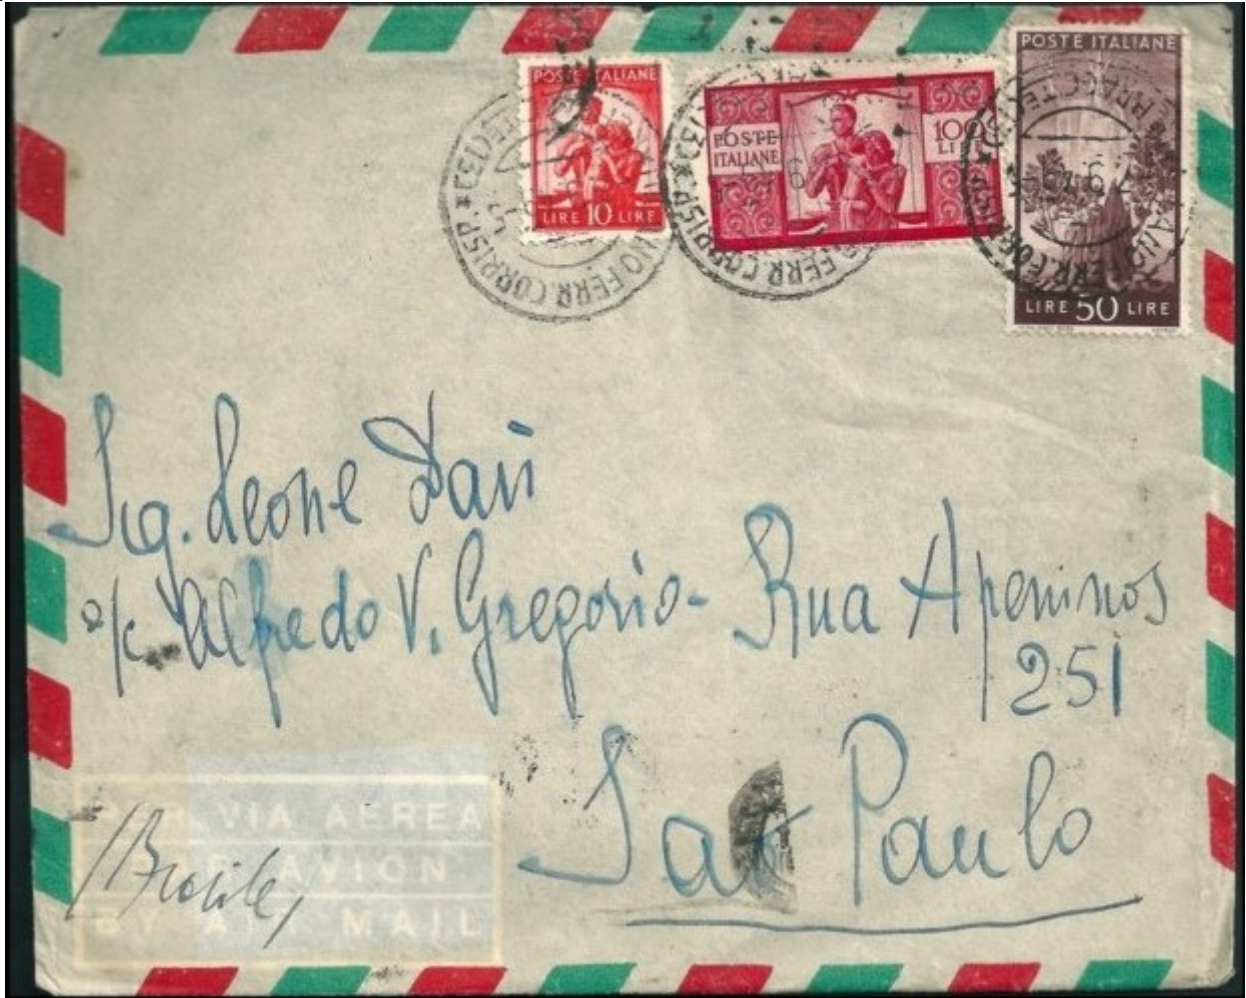 POSTE ITALIANE
LIRE 10 LIRE
POSTE
ITALIANE
100
LIRE
POSTE ITALIANE
LIRE 50 LIRE
FERR. CORRISP.
FERR. CORRISP.
Sig. Leone
c/ Alfredo V. Gregorio - Rua Apeninos
251
Paulo
PER VIA AEREA
PAR AVION
BY AIR MAIL
/Brasile/